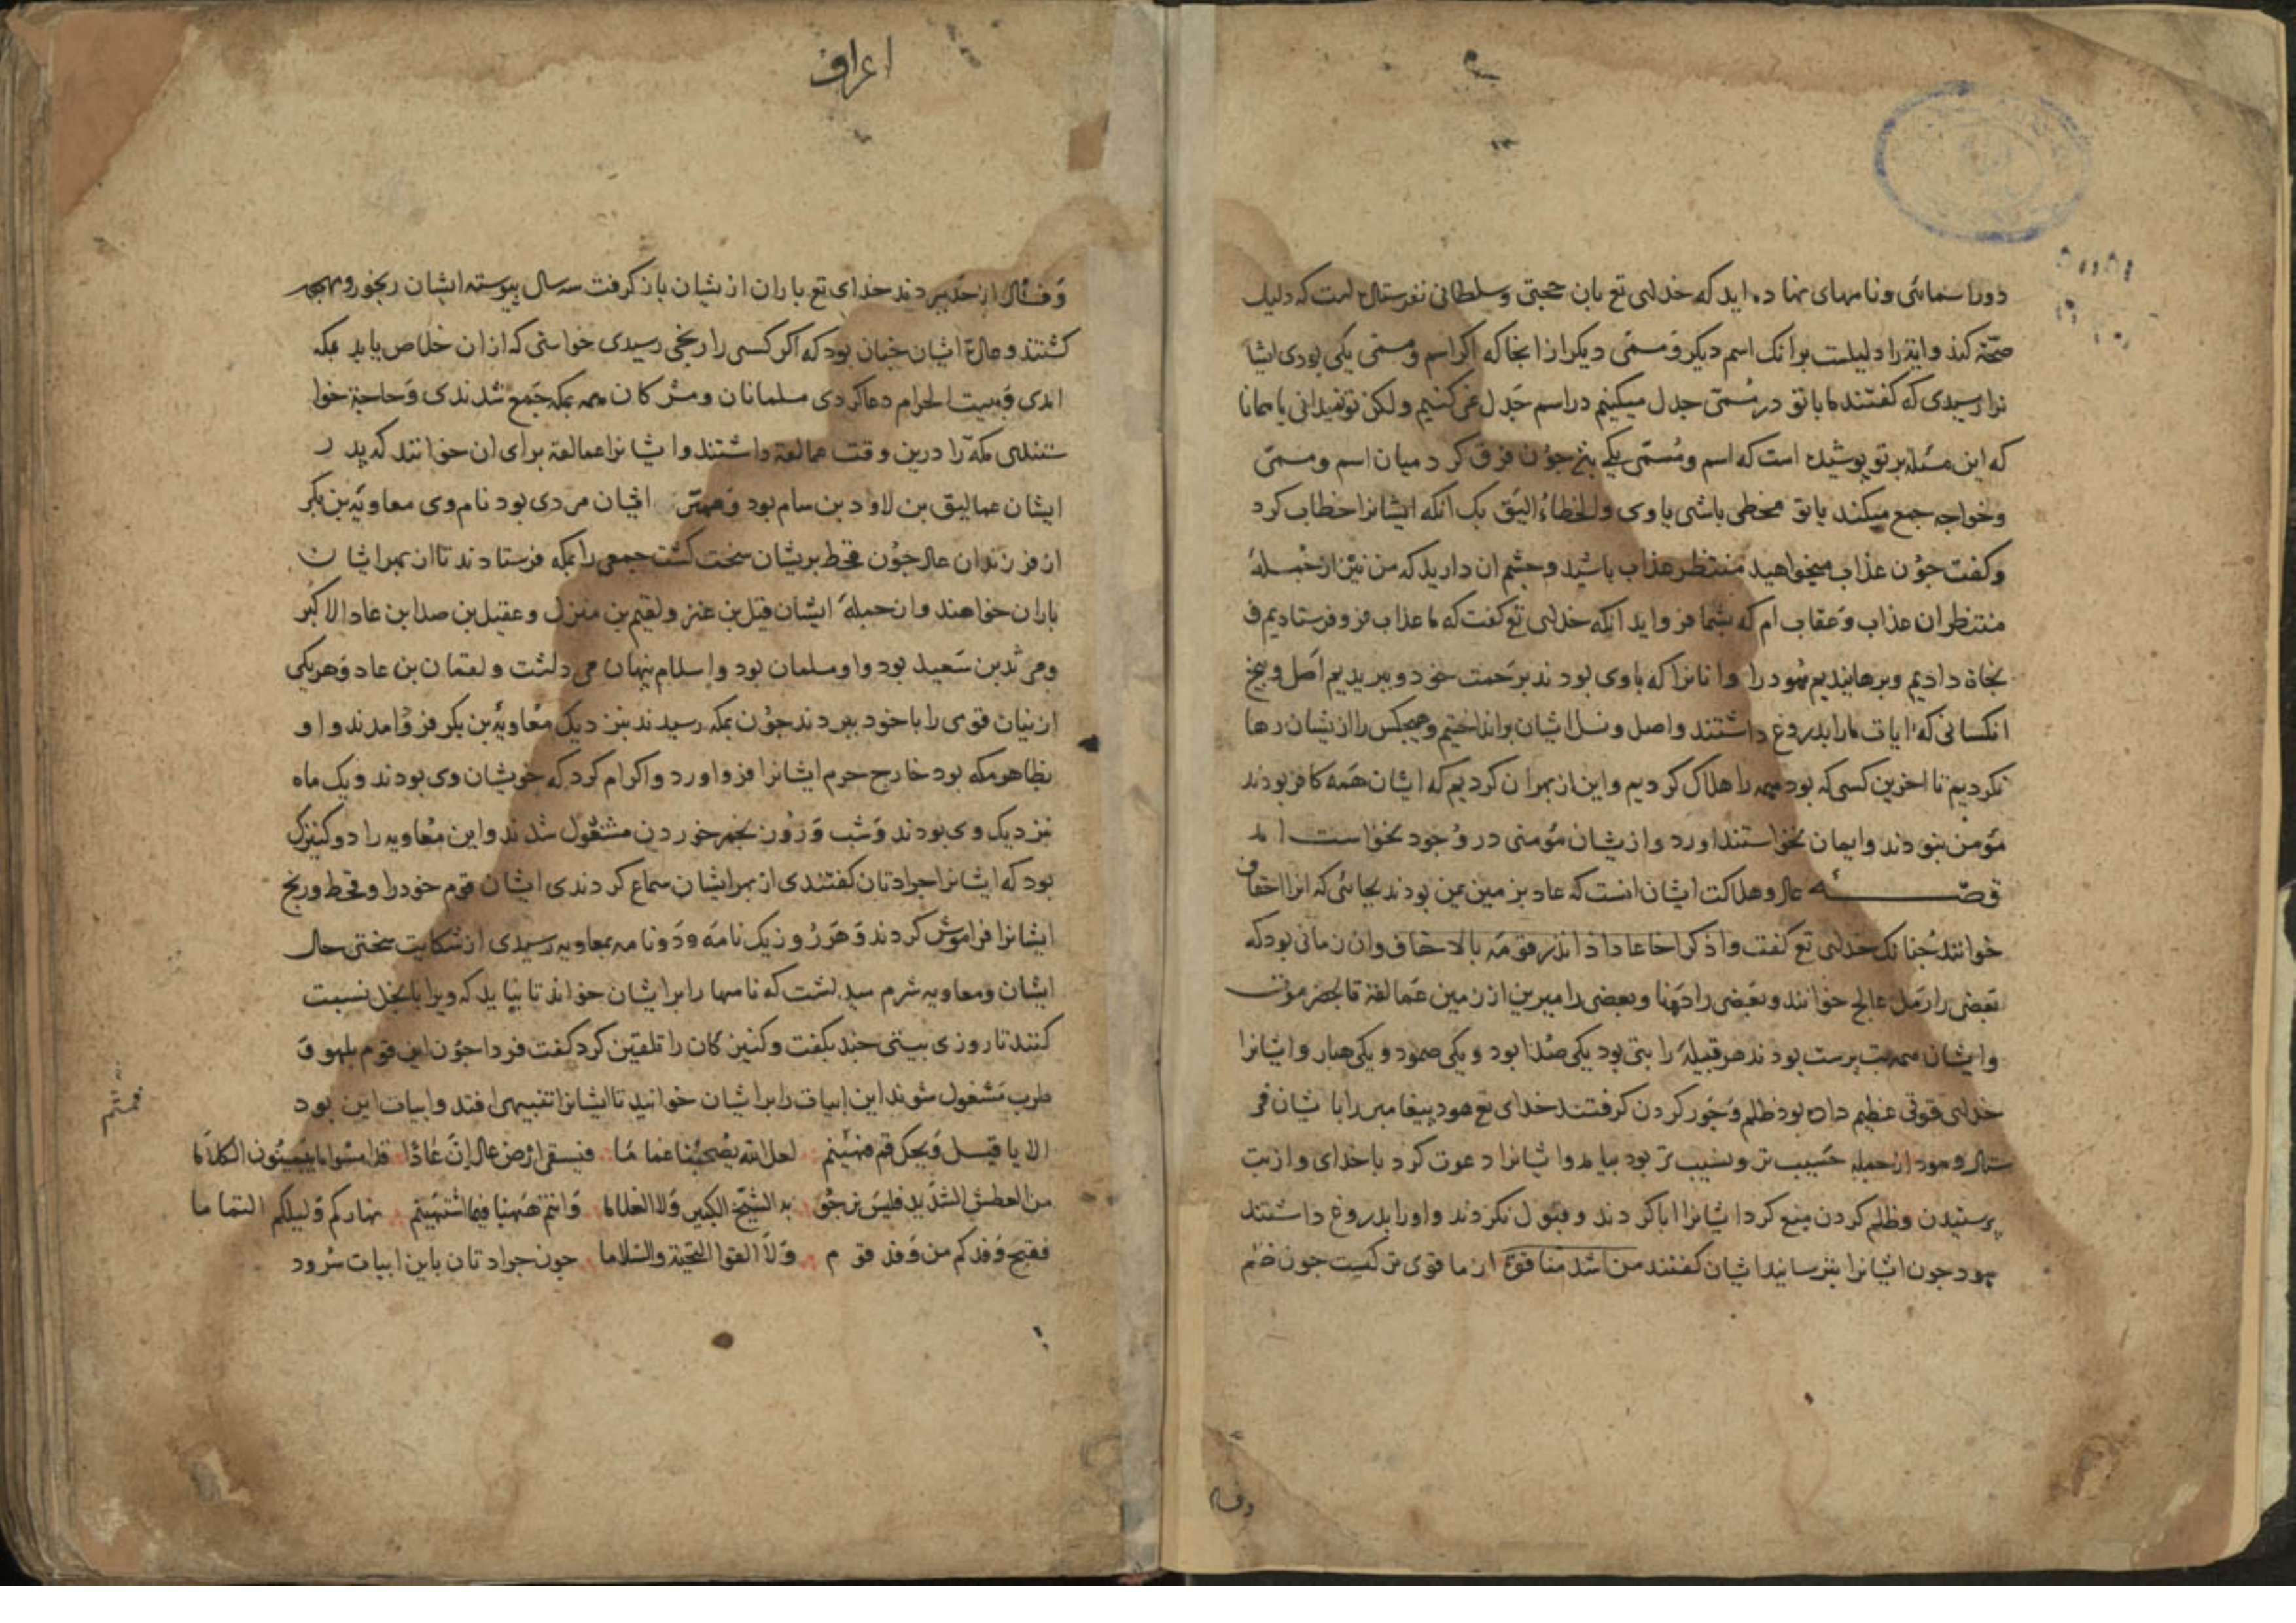 دورا سمائی و نامهای نهاده اید که خدای تع بان حجتی و سلطانی نفرستاد است که دلیل
صحة کند و اینرا دلیلست برانک اسم دیکر و مسمّی دیکر از انجا که اکر اسم و مسمّی یکی بودی ایشا
نرا رسیدی که کفتند ما با تو در مُسمّی جدل میکنیم در اسم جَدل نمی کنیم ولکن تو نمیدانی یا همانا
که این مسئله بر تو پوشیده است که اسم و مُسمّی یکیست جوُن فرق کرد میان اسم و مسمّی
وخواجه جمع میکند یا تو مخطی باشی یا وی والخطاءُ الیَق بک انکه ایشانرا خطاب کرد
وکفت جوُن عذاب میخواهید منتظر عذاب باشید و جشم ان دارید که من نیز از جُمله
منتظران عذاب وَ عقاب ام که بشما فرو اید انکه خدای تع کفت که ما عذاب فرو فرستادیم ف
نجاة دادیم وبرهانیدیم هُود را و انانرا که باوی بودند برحمت خود و ببریدیم اصل و بیخ
انکسانی که ایات مارا بدروغ داشتند و اصل و نسل ایشان برانداختیم و هیجکس را از یشان رها
نکردیم تا اخرین کسی که بود همه را هلاک کردیم و این از بهر ان کردیم که ایشان همَه کافر بودند
مؤمن نبودند و ایمان نخواستند اورد و از یشان مؤمنی در وُجود نخواست امد
قصّه عاد و هلاکت ایشان انست که عاد بزمین یمن بودند بجائی که انرا احقاف
خوانند جُنانک خدای تع کفت واذکر اخا عاد اذ انذر قومَه بالاحقاف و ان زمانی بود که
بَعضی را رَمل عالج خوانند و بَعَضی را دَهنا و بعضی را یبرین از زمین عَمالقة تا بحضرموت
وایشان همه بت پرست بودند هر قبیلهٔ را بتی بود یکی صُدا بود و یکی صمود و یکی هبار و ایشانرا
خدای قوتی عظیم داده بود ظلم و جَور کردن کرفتند خدای تع هود پیغامبر را با یشان فر
ستاد و هود از جمله حَسیب تر و نسیب تر بود بیامد و ایشانرا دعوت کرد با خدای و از بت
پرستیدن وظلم کردن منع کرد ایشانرا ابا کردند و قبول نکردند و اورا بدروغ داشتند
هود جون ایشانرا بترسانید ایشان کفتند من اشد منا قوة از ما قوی تر کیست جون ظلم
وفساد
اعراف
وَ فساد از حَد ببردند خدای تع باران از یشان باز کرفت سه سال پیوسته ایشان رنجور و
کشتند و عادة ایشان جنان بود که اکر کسی را رنجی رسیدی خواستی که از ان خلاص یابد بمکه
امدی وَ ببیت الحرام دعا کردی مسلمانان و مشرکان همه بمکه جَمع شدندی وَ حاجة خوا
ستندی مکهّ را درین وقت عمالقة داشتند و ایشانرا عمالقة برای ان خوانند که پدر
ایشان عمالیق بن لاود بن سام بود و مهتر ایشان مردی بود نام وی معاویَة بن بکر
از فرزندان عاد جوُن قحط بریشان سخت کشت جمعی را بمکه فرستادند تا از بهر ایشان
باران خواهند و ان جمله ایشان قیل بن عنز و لقیم بن هزل و عقیل بن صد ابن عاد الاکبر
و مرثد بن سَعید بود و او مسلمان بود و اسلام پنهان می داشت و لقمان بن عاد وَ هر یکی
از نیان قوی را با خود ببردند جوُن بمکه رسیدند بنزدیک معُاویة بن بکر فرو امدند و او
بظاهر مکه بود خارج حرم ایشانرا فرو اورد و اکرام کرد که خویشان وی بودند و یک ماه
نزدیک وی بودند وَ شب وَ روُز بخمر خوردن مشغول شدند و این معُاویه را دو کنیزک
بود که ایشانرا جرادتان کفتندی از بهر ایشان سماع کردندی ایشان قوم خود را و قحط و رنج
ایشانرا فراموُش کردند وَ هَر رُوز یک نامَه و دَو نامه بمعاویه رسیدی از شکایت سختی حال
ایشان و معاویه شرم میداشت که نامها را بر ایشان خواند تا نباید که ویرا با بخل نسبت
کنند تا روزی بیتی جند بکفت و کنیزکان را تلقین کرد کفت فردا جوُن این قوم بلهو وَ
طرب مَشغول شوند این ابیات را بر ایشان خوانید تا ایشانرا تنبیهی افتد و ابیات این بود
الا یا قیل وَیحک قم فهینم لعل الله یُصبحُنا غماما فیسقی ارض عاد إنَّ عَادًا قد امسوا ما یبینُون الکلاَما
من العطش الشدّید فلیس نرجُو به الشیّخ الکبیر وَلا الغلاما وَانتم هَهنا فیما اشتهَیتم نهارکم وَلیلکم التماما
فقبح وَفدکم من وَفد قوم وَلاَ لقوا التحیّة والسّلاما جون جرادتان باین ابیات سُرود